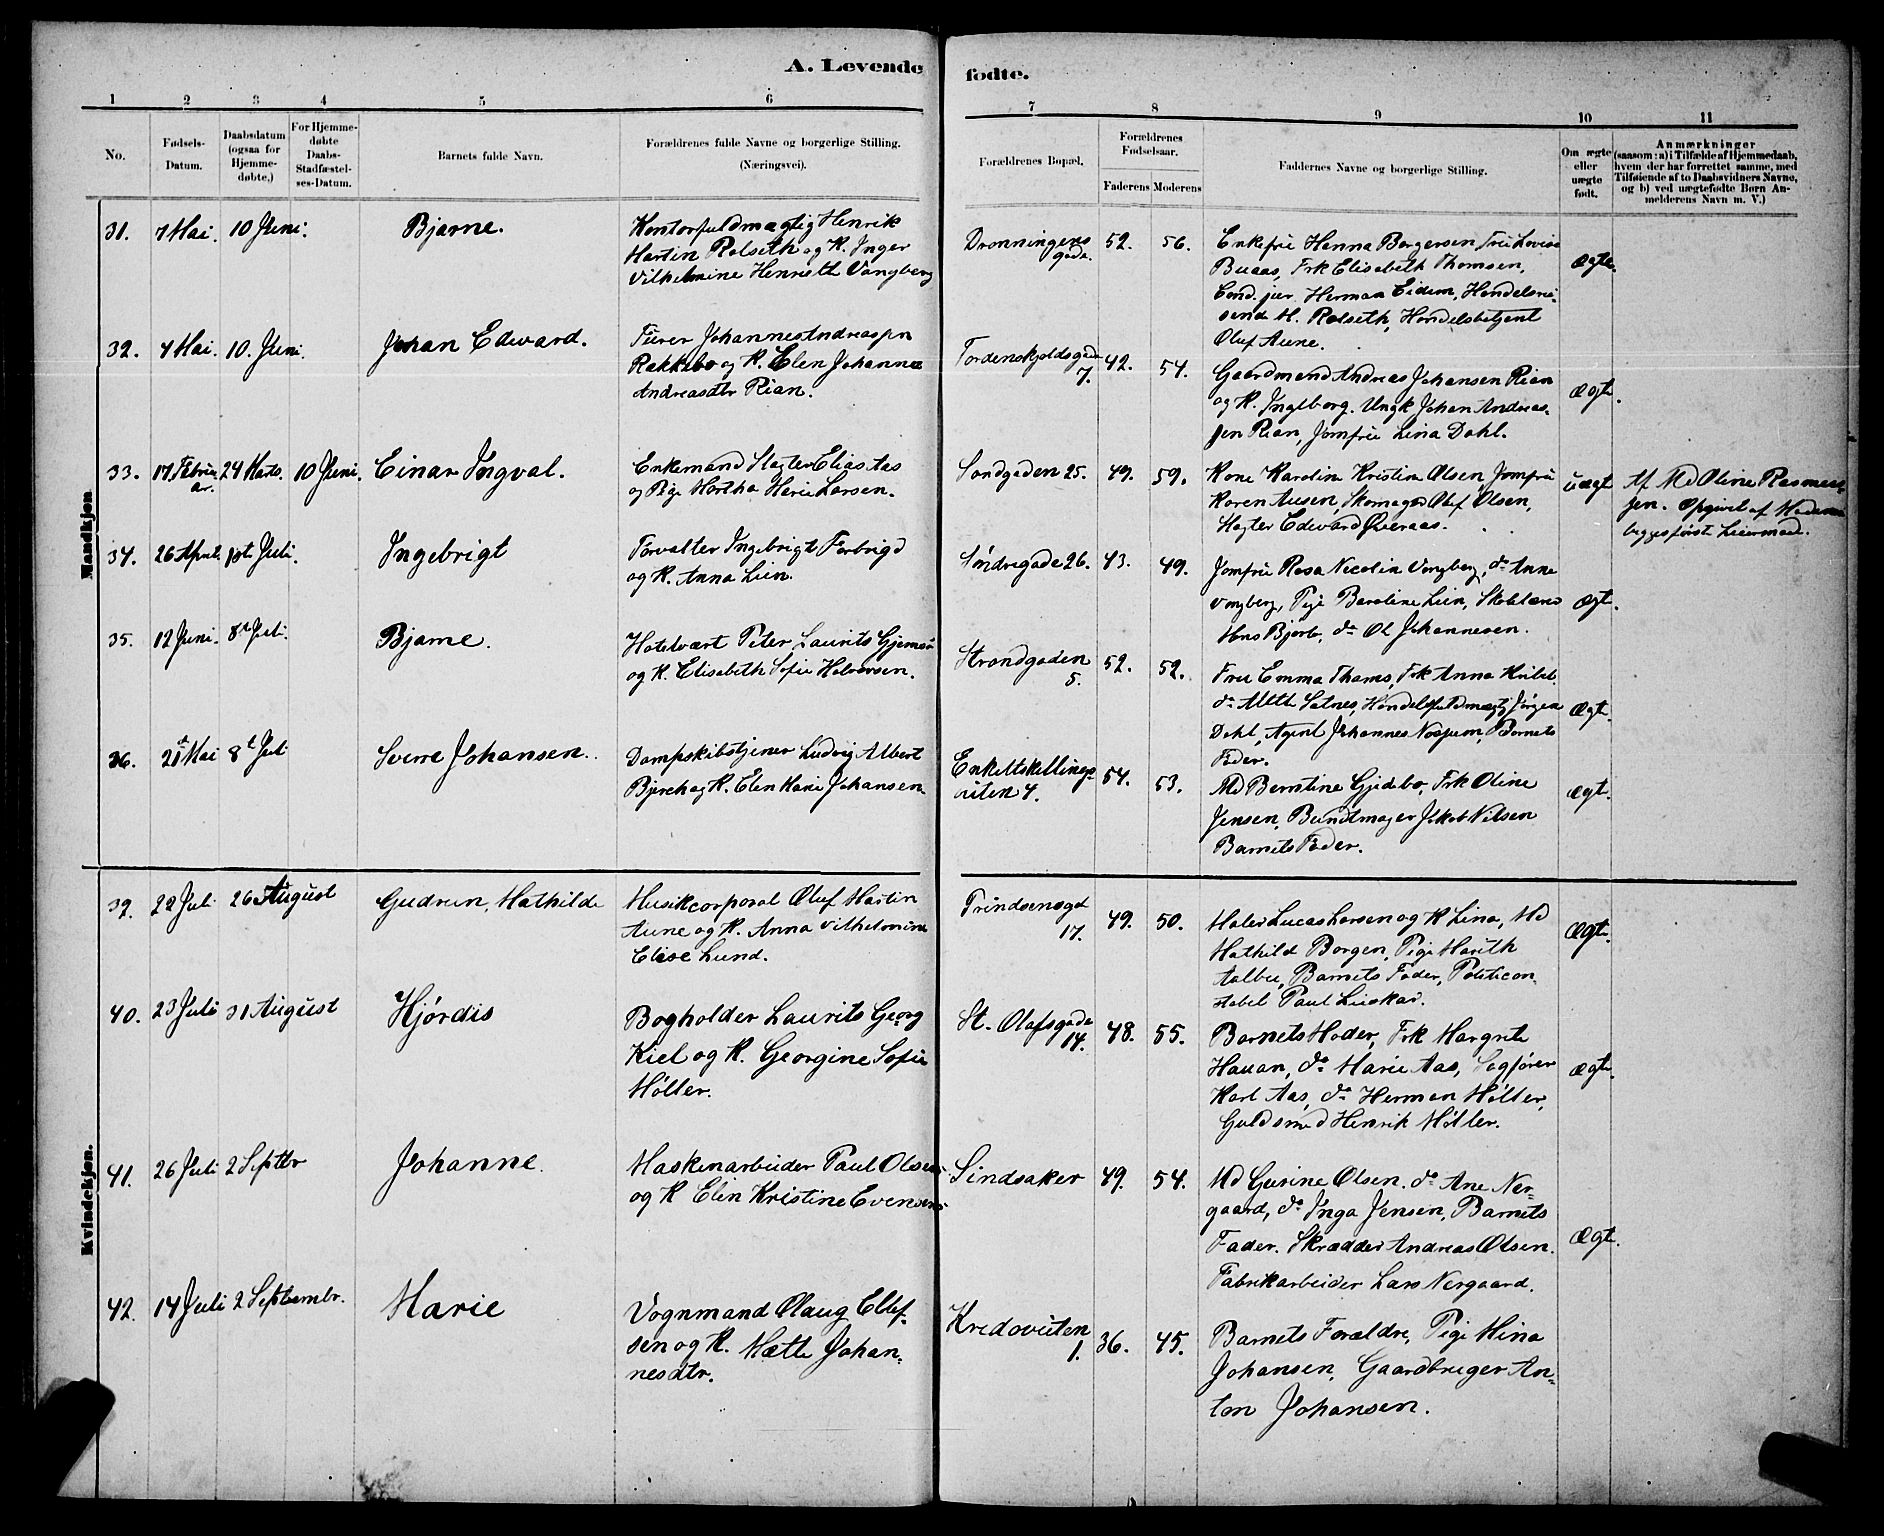 A. Levende fødte.
1 2 3 4 5 6 7 8 9 10 11
No.
Fødsels-
Datum.
Daabsdatum
(ogsaa for
Hjemme-
døbte,)
For Hjemme-
døbte
Daabs-
Stadfæstel-
ses-Datum.
Barnets fulde Navn.
Forældrenes fulde Navne og borgerlige Stilling.
(Næringsvei).
Forældrenes Bopæl.
Forældrenes
Fødselsaar.
Faderens Moderens
Faddernes Navne og borgerlige Stilling.
Om ægte
eller
uægte
født.
Anmærkninger
(saasom: a) i Tilfælde af Hjemmedaab,
hvem der har forrettet samme, med
Tilføiende af to Daabsvidners Navne,
og b) ved uægtefødte Børn An-
melderens Navn m. V.)
Mandkjøn
31. 7 Mai. 10 Juni. Bjarne.
Kontorfuldmægtig Henrik
Martin Rolseth og K. Inger
Vilhelmine Henriette Vangberg
Dronningens
gade.
52. 56.
Enkefru Hanna Borgersen, Fru Lovise
Buaas, Frk Elisabeth Thomsen,
Cand. jur. Herman Eidem, Handelsrei-
sende M. Rolseth, Handelsbetjent
Oluf Aune.
Ægte.
32. 4 Mai. 10. Juni. Johan Edvard.
Furer Johannes Andreassen
Rakksbo og K. Elen Johanna
Andreasdtr Rian.
Tordenskjoldsgade
7.
42. 54.
Gaardmand Andreas Johansen Rian
og K. Ingeborg. Ungk Johan Andreas-
sen Rian, Jomfru Lina Dahl.
Ægte.
33. 17 Februar. 24 Marts. 10 Juni. Einar Ingval.
Enkemand Slagter Elias Aas
og Pige Martha Marie Larsen.
Sandgaden 25. 49. 59.
Kone Karolin Kristin Olsen, Jomfru
Karen Ausen, Skomager Oluf Olsen,
Slagter Edvard Øveraas.
Uægt
Af Md Oline Rasmus-
sen. Opgivet af Moderen
begges første Leiermaal.
34. 26 April. 1ste Juli. Ingebrigt
Forvalter Ingebrigt Forbrigd
og K. Anna Lien.
Søndregade 26. 43. 49.
Jomfru Rosa Nicolin Vangberg, do Anna
Vangberg, Pige Baroline Lien,
Hans Bjerb, do Ol Johannesen.
Ægt.
35. 12 Juni. 8de Juli. Bjarne.
Hotelvært Peter Laurits Gjemsø
og K. Elisabeth Sofie Halvorsen.
Strandgaden
5.
52. 52.
Fru Emma Thams, Frk Anna
do Mette Satnes, Handelsfuldmægtig Jørgen
Dahl, Agent Johannes Nossum, Barnets
Fader.
Ægt.
36. 21 Mai 8de Juli Sverre Johansen.
Dampskibstjener Ludvig Albert
Bjerch og K. Elen Marie Johansen
Enkeltskillings-
viten 4.
54. 53.
Md Berntine Gjedebo, Frk Oline
Jensen, Bundtmager Jakob Nilsen
Barnets Fader.
Ægt.
Kvindekjøn.
39. 22 Juli 26 August Gudrun, Mathilde
Musikcorporal Oluf Martin
Aune og K. Anna Vilhelmine
Elise Lund.
Trindsensgd
17.
49. 50.
Maler Lucas Larsen og K Lina, Md
Mathild Borgen, Pige Marith
Aalbu, Barnets Fader, Politicon-
stabel Paul Luskad.
Ægt.
40. 23 Juli 31 August Hjørdis
Bogholder Laurits Georg
Kiel og K. Georgine Sofie
Møller.
St. Olafsgade
14.
48. 55.
Barnets Moder, Frk Margrete
Hauan, do Marie Aas, Sagfører
Karl Aas, do Herman Møller,
Guldsmed Henrik Møller.
Ægt.
41. 26 Juli 2 Septbr Johanne.
Maskinarbeider Paul Olsen
og K Elin Kristine Evensen
Sindsaker 49. 54.
Md Gurine Olsen. do Ane Ner-
gaard, do Inga Jensen, Barnets
Fader. Skrædder Andreas Olsen.
Fabrikarbeider Lars Nergaard.
Ægt.
42. 14 Juli 2 Septembr. Marie
Vognmand Olaug Ellef-
sen og K. Mætte Johan-
nesdtr.
Kredoveiten
1.
36. 45.
Barnets Forældre, Pige Mina
Johansen, Gaardbruger An-
ton Johansen.